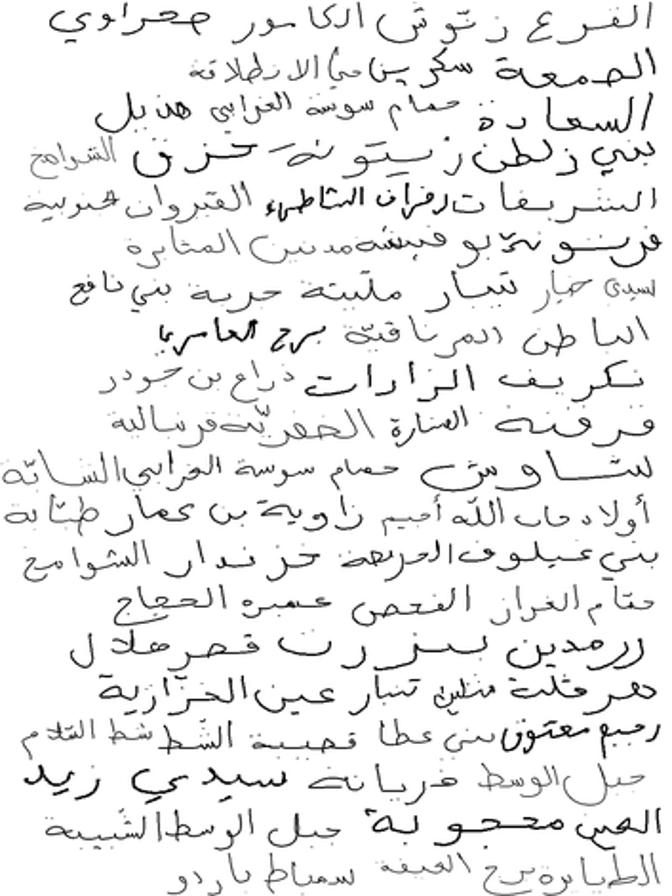 الفرع زنّوش الكامور صحراوي
الصمعة سكرين حيّ الانطلاقة
السعادة حمام سوسة الغرابي هذيل
بني زلطن زيتونة خزق الشرامخ
الشريفات رفراف الشاطىء القيروان جنوبية
فرنسونة بو فيشة مدنين المثابرة
سيدي خيار تيبار ملبيتة حرية بني نافع
الباطن المرناقيّة برج العامري
تكريف الزارات ذراع بن جودر
قرقنة المنارة الخضريّة فرسالية
شاوش حمام سوسة الغرابي الشابّة
أولاد جاب اللّه أميم زاوية بن عمار طبّابة
بني غيلوف العريضة خزندار الشوامخ
مقام الغراز الفحص عميرة الحجاج
رمدين بنزرت قصر هلال
منزلين تيبار عين الخرّازية
رجيم معتوق بني عطا قصيبة الشط شط السّلام
جبل الوسط فريانة سيدي زيد
العين معجوبة جبل الوسط الشبيبة
الطيايرة برج العيفة سمباط باردو